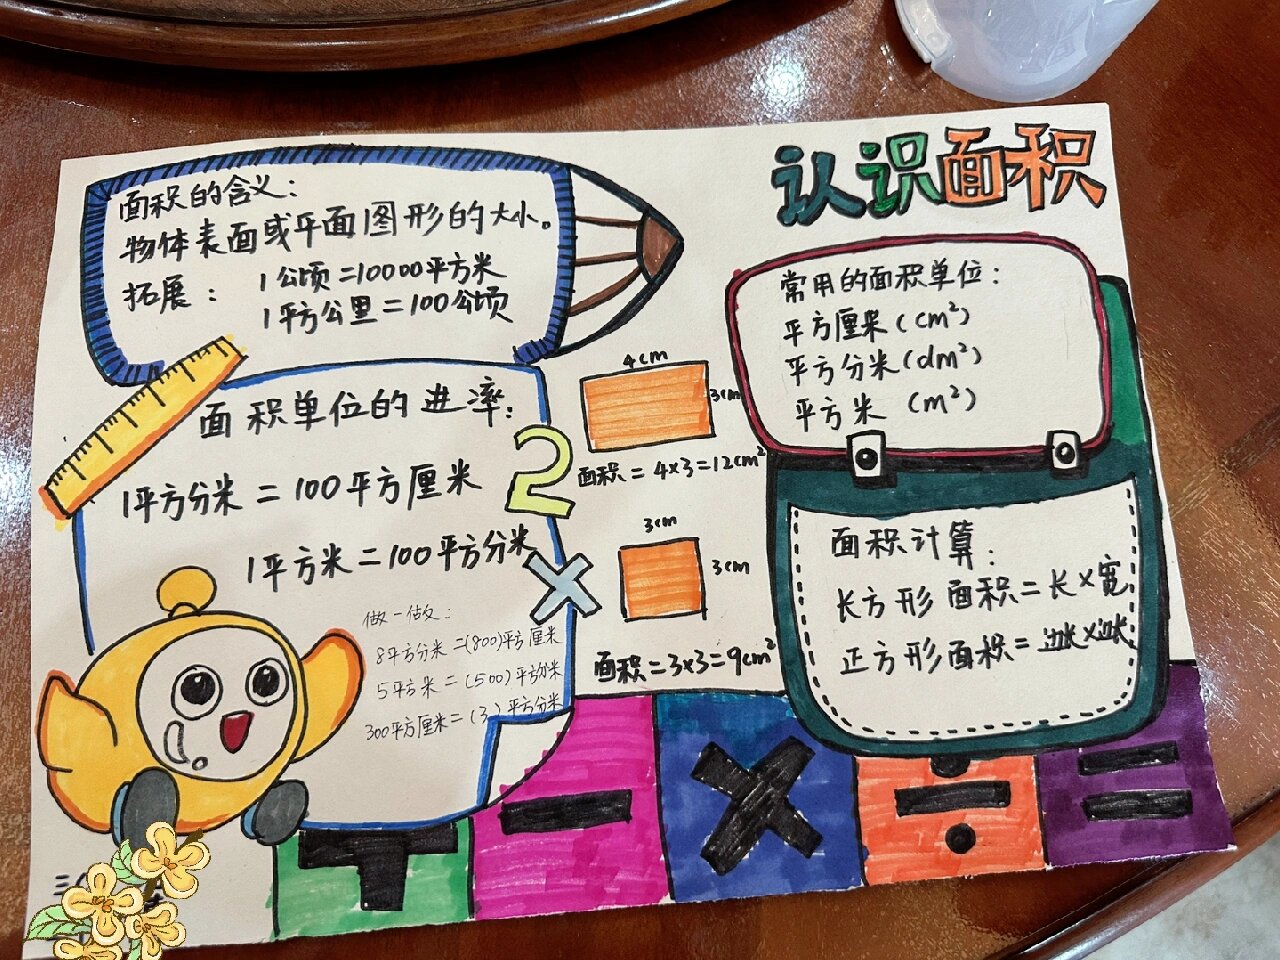 认识面积
面积的含义：
物体表面或平面图形的大小。
拓展： 1公顷=10000平方米
1平方公里=100公顷
面积单位的进率：
1平方分米=100平方厘米
1平方米=100平方分米
做一做：
8平方分米=(800)平方厘米
5平方米=(500)平方分米
300平方厘米=(3)平方分米
2
×
4cm
3cm
面积=4×3=12cm²
3cm
3cm
面积=3×3=9cm²
常用的面积单位：
平方厘米(cm²)
平方分米(dm²)
平方米 (m²)
面积计算：
长方形面积=长×宽
正方形面积=边长×边长
+ − × ÷ =